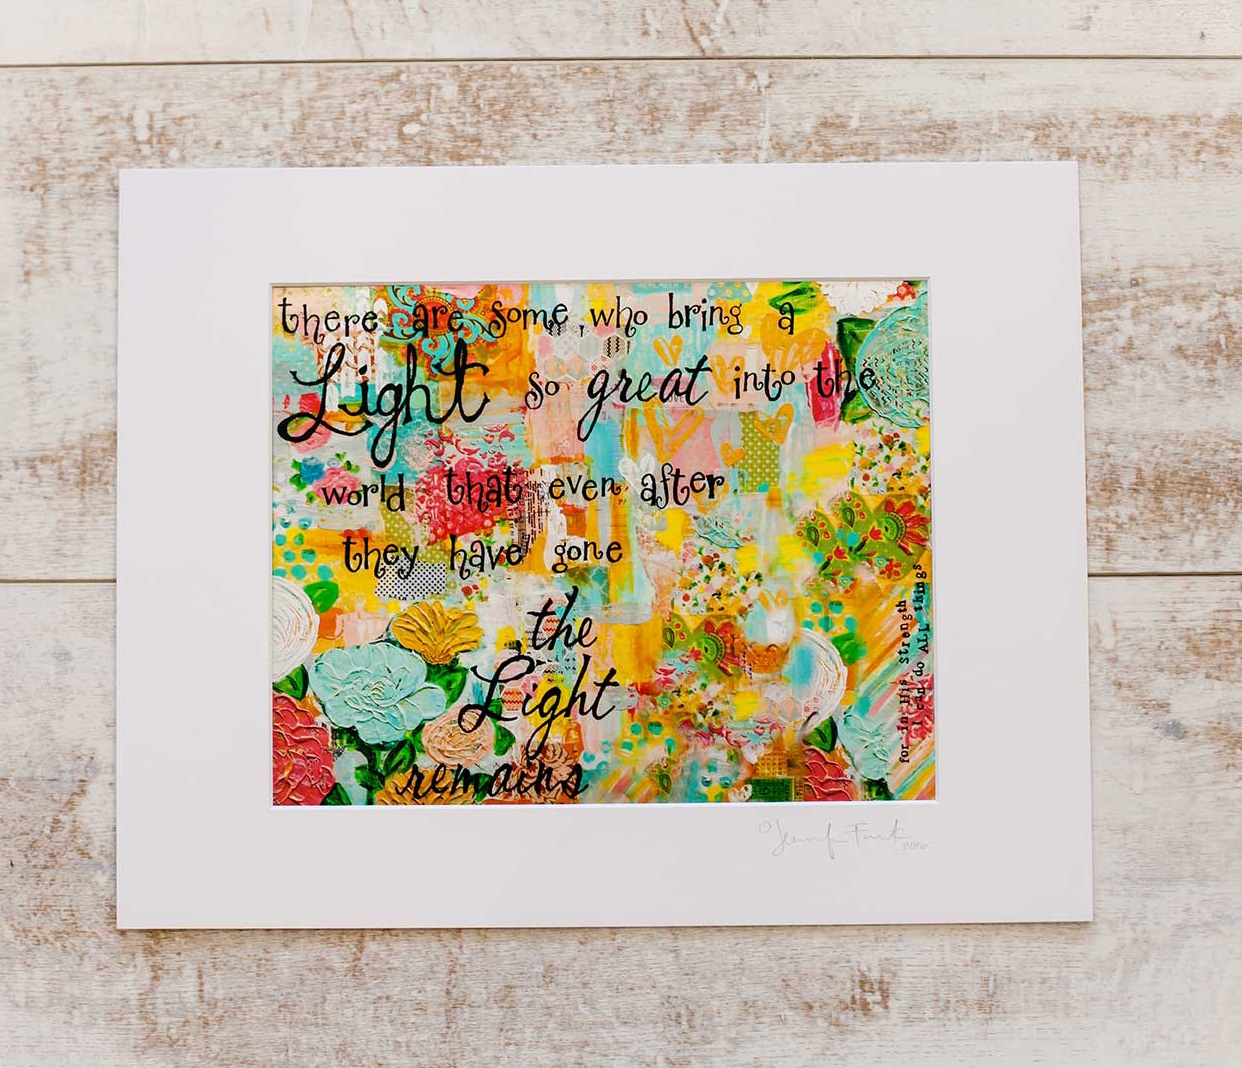 there are some who bring a
Light so great into the
world that even after
they have gone
the
Light
remains
for in His strength
I can do ALL things
© Jennifer Finck
2016